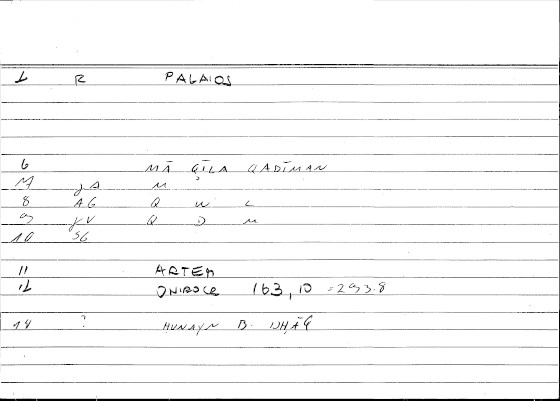 1 R PALAIOS
6 MĀ QĪLA QADĪMAN
7 gA M
8 AG Q W L
9 gV Q D M
10 SG
11 ARTEM
12 ONIROCR 163,10 =293.8
14 ? HUNAYN B. ISḤĀQ